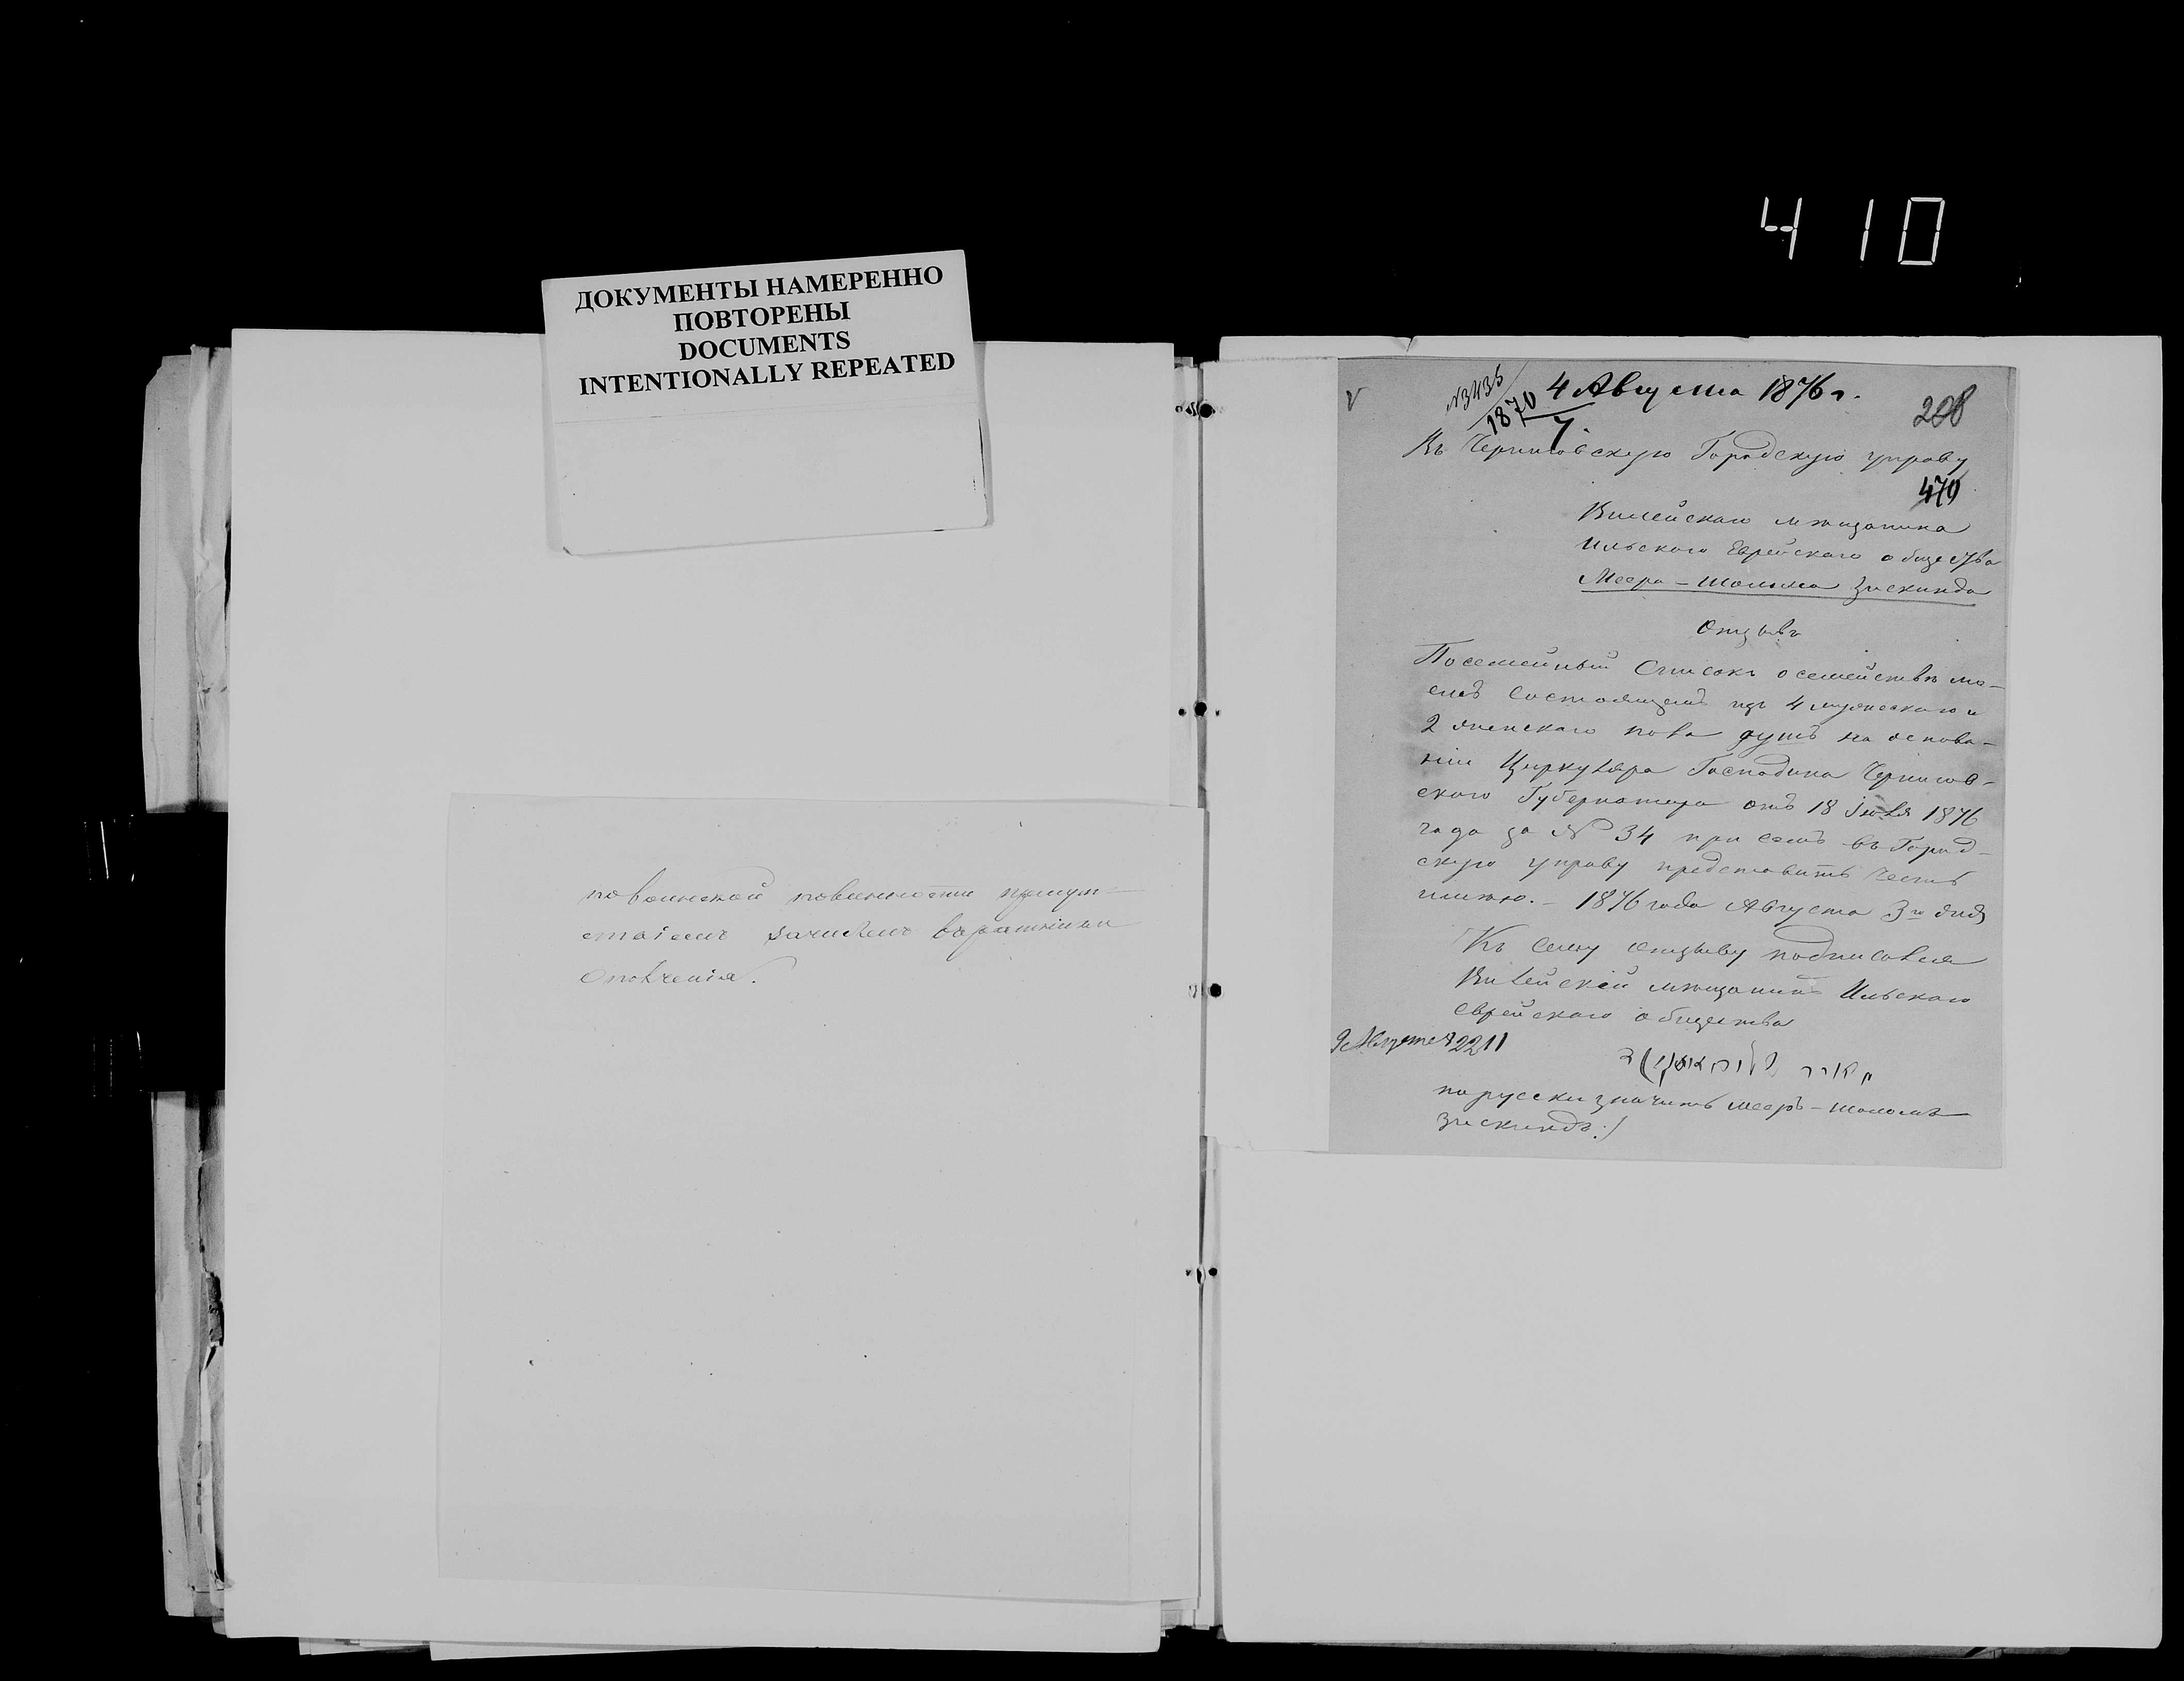 410
ДОКУМЕНТЫ НАМЕРЕННО
ПОВТОРЕНЫ
DOCUMENTS
INTENTIONALLY REPEATED
по воинской повинности
зачислен в ратники
ополченія.
4 Августа 1876 г.
208
Въ Черниговскую Городскую управу
470
Вилейскаго мѣщанина
Ильскаго Еврейскаго общества
Меера-Шолома Зискинда
Отзывъ
Посемейный Списокъ о семействѣ мо-
емъ состоящемъ изъ 4 мужескаго и
2 женскаго пола душъ на основа-
ніи Циркуляра Господина Чернигов-
скаго Губернатора отъ 18 Іюля 1876
года за № 34 при семъ въ Город-
скую управу представить честь
имѣю. - 1876 года Августа 3го дня
Къ сему отзыву подписался
Вилейскій мѣщанинъ Ильскаго
еврейскаго общества
9 Августа 2211
מאיר
по русски значитъ Мееръ-Шоломъ
Зискиндъ